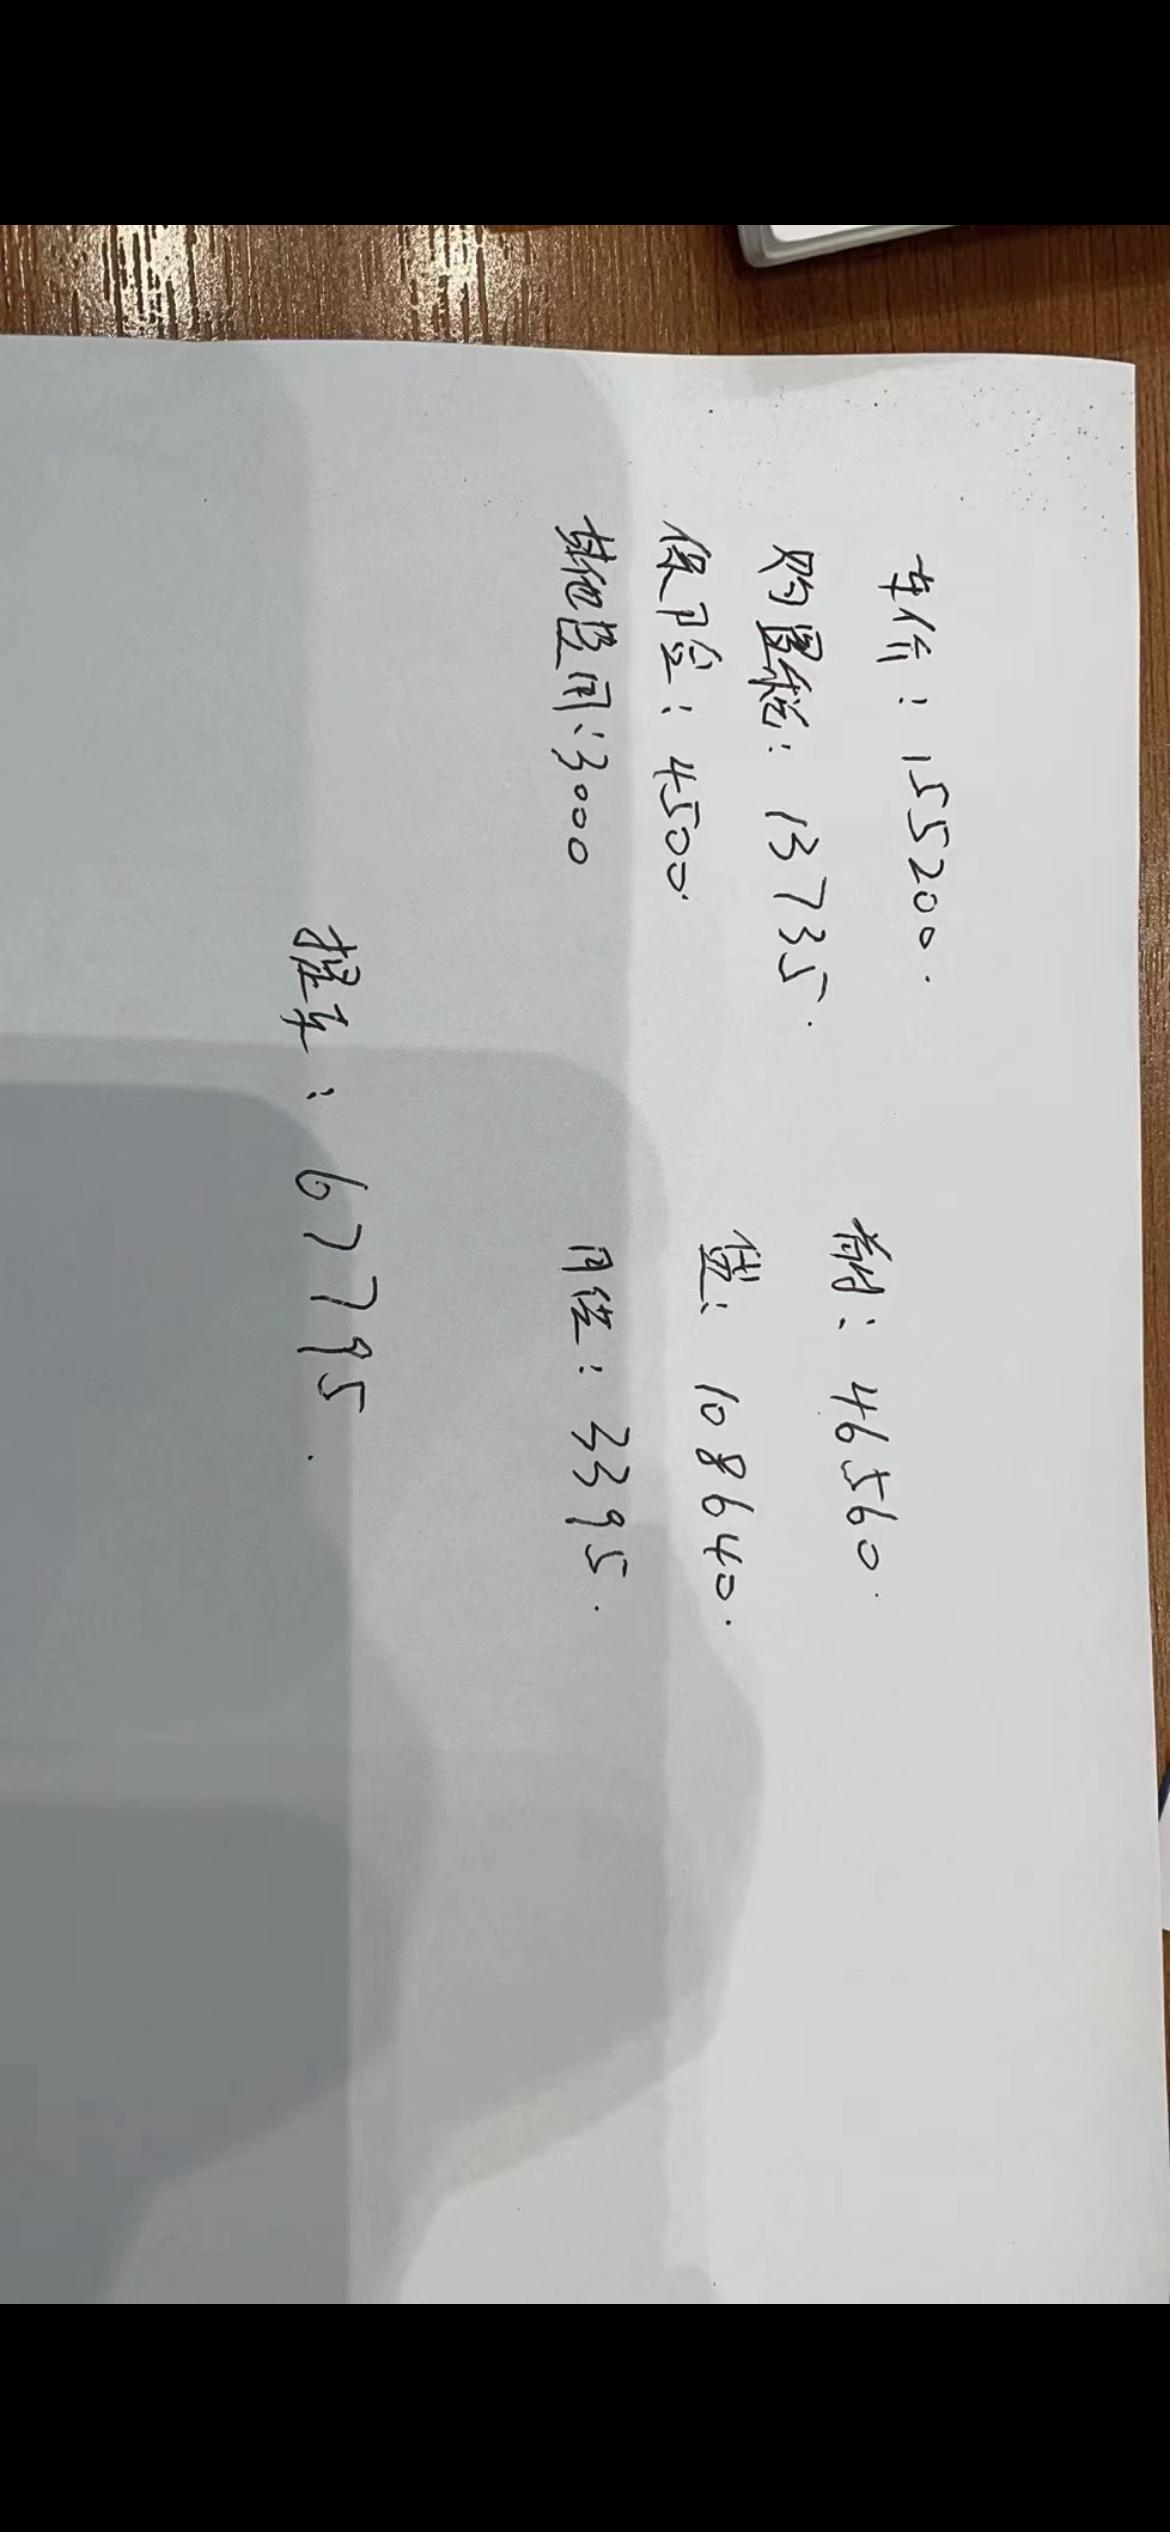 车价：155200.
购置税：13735.
保险：4500.
其他费用：3000
首付：46560.
贷：108640.
月供：3395.
提车：67795.